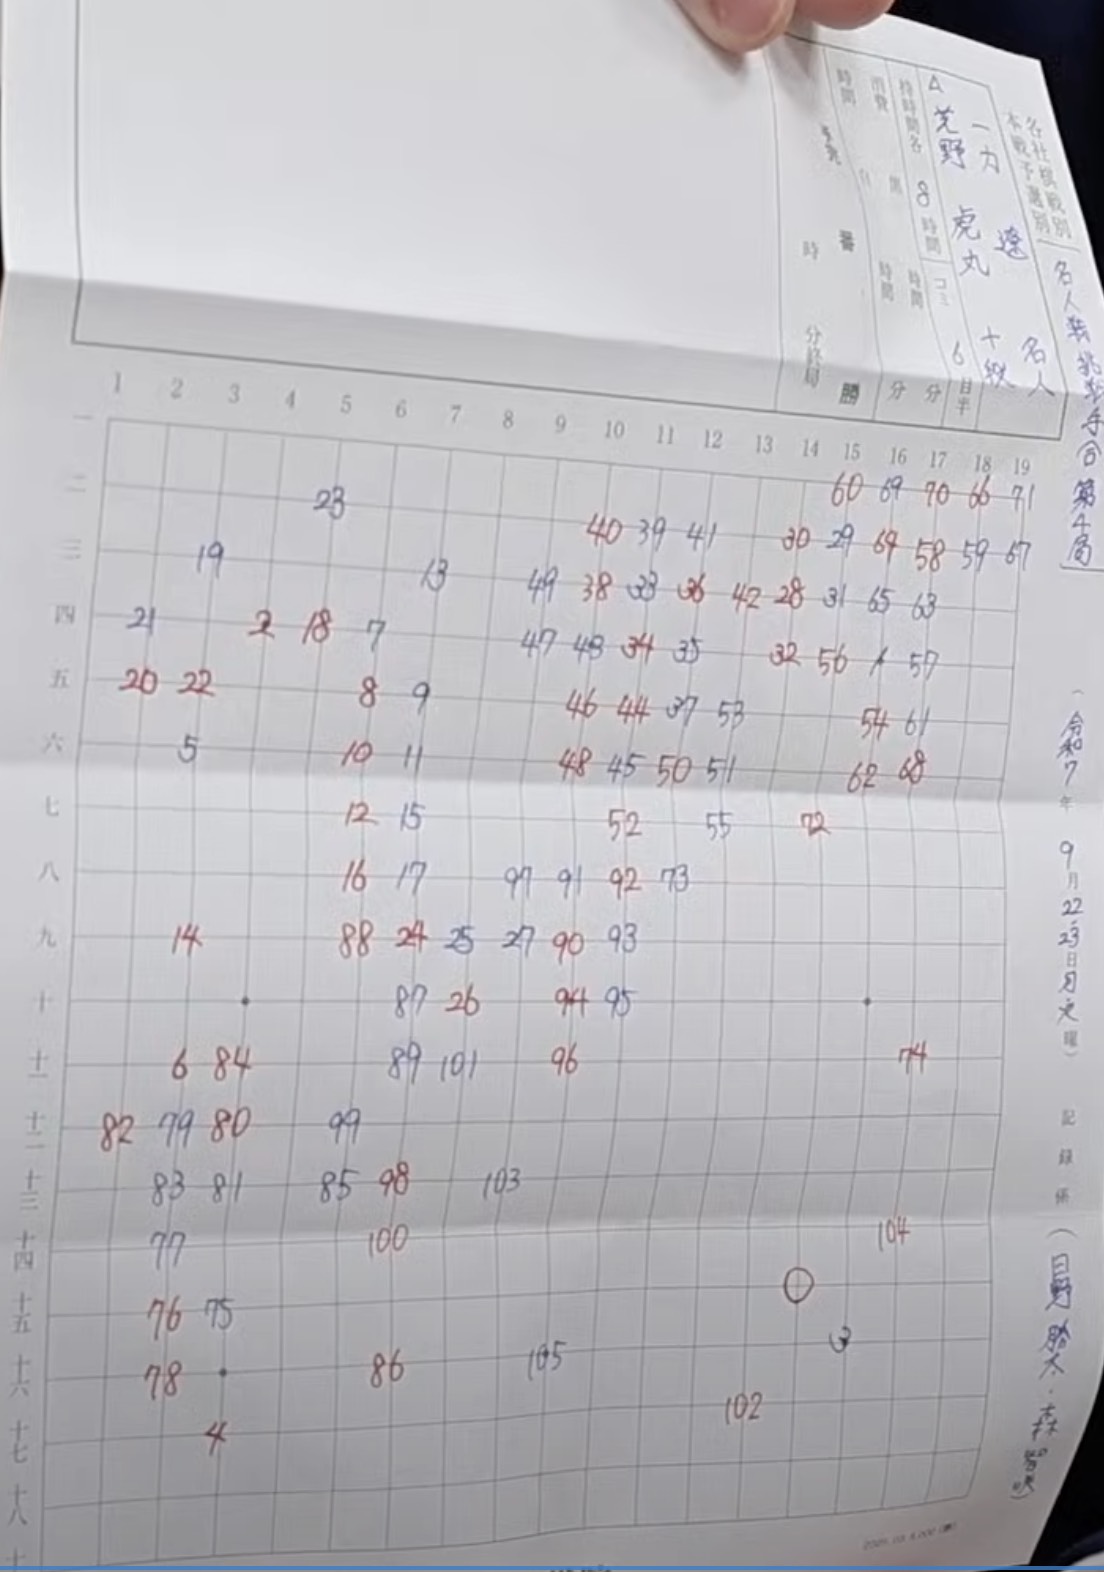 各社棋戦別
本戦予選別
名人戦挑戦手合第4局
一力 遼 名人
芝野 虎丸 十段
持時間各 8 時間 コミ 6 目半
消費
時間
時間 分
時間 分
勝
時 分終局
1 2 3 4 5 6 7 8 9 10 11 12 13 14 15 16 17 18 19
一
二 60 69 70 66 71
23 40 39 41 30 29 64 58 59 67
三 19 13 49 38 33 36 42 28 31 65 63
四 21 2 18 7 47 43 34 35 32 56 1 57
五 20 22 8 9 46 44 37 53 54 61
六 5 10 11 48 45 50 51 62 68
七 12 15 52 55 72
八 16 17 97 91 92 73
九 14 88 24 25 27 90 93
十 87 26 94 95
十一 6 84 89 101 96 74
十二 82 79 80 99
十三 83 81 85 98 103
十四 77 100 104
十五 76 75
十六 78 86 105 3
十七 4 102
十八
(令和7年 9月22,23日月火曜)
記録係